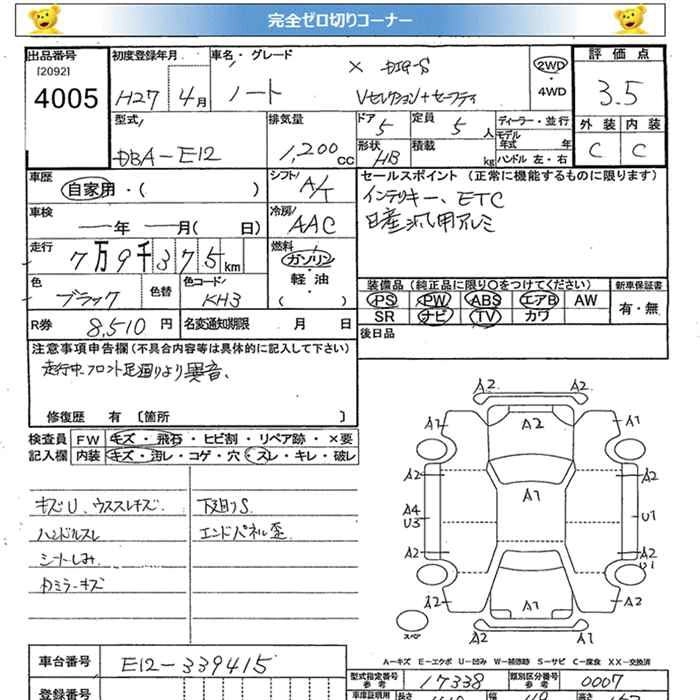 完全ゼロ切りコーナー
出品番号
[2092]
4005
初度登録年月
H27 4月
車名・グレード
ノート × DIG-S
Vセレクション+セーフティ
2WD
・
4WD
評価点
3.5
外装 内装
C C
型式
DBA-E12
排気量
1,200 cc
ドア
5
定員
5人
形状
HB
積載
kg
ディーラー・並行
モデル
年式 年
ハンドル 左・右
車歴
自家用・( )
シフト
A/T
車検
年 月( 日)
冷房
AAC
走行
7万9千375km
燃料
ガソリン
・
軽油
・
( )
色
ブラック
色替
色コード
KH3
R券
8,510円
名変通知期限 月 日
セールスポイント (正常に機能するものに限ります)
インテリキー、ETC
日産汎用アルミ
装備品 (純正品に限り○をつけてください)
PS PW ABS エアB AW
SR ナビ TV カワ
新車保証書
有・無
後日品
注意事項申告欄(不具合内容等は具体的に記入して下さい)
走行中、フロント足廻りより異音、
修復歴 有 〔箇所 〕
検査員
記入欄
FW キズ・飛石・ヒビ割・リペア跡・×要
内装 キズ・汚レ・コゲ・穴・スレ・キレ・破レ
キズU、ウススレキズ、
ハンドルスレ
シートしみ
内ミラーキズ
下廻りS
エンドパネル歪
A2 A2
A1 A2 A1
A2 A2
A1
A4
U3
U1
A2 A2
A2 A1 A2
A2 A2
スペア
A-キズ E-エクボ U-凹み W-補修跡 S-サビ C-腐食 XX-交換済
車台番号
E12-339415
登録番号
型式指定番号
参考
17338
類別区分番号
参考
0007
車庫証明用
長さ
幅
高さ